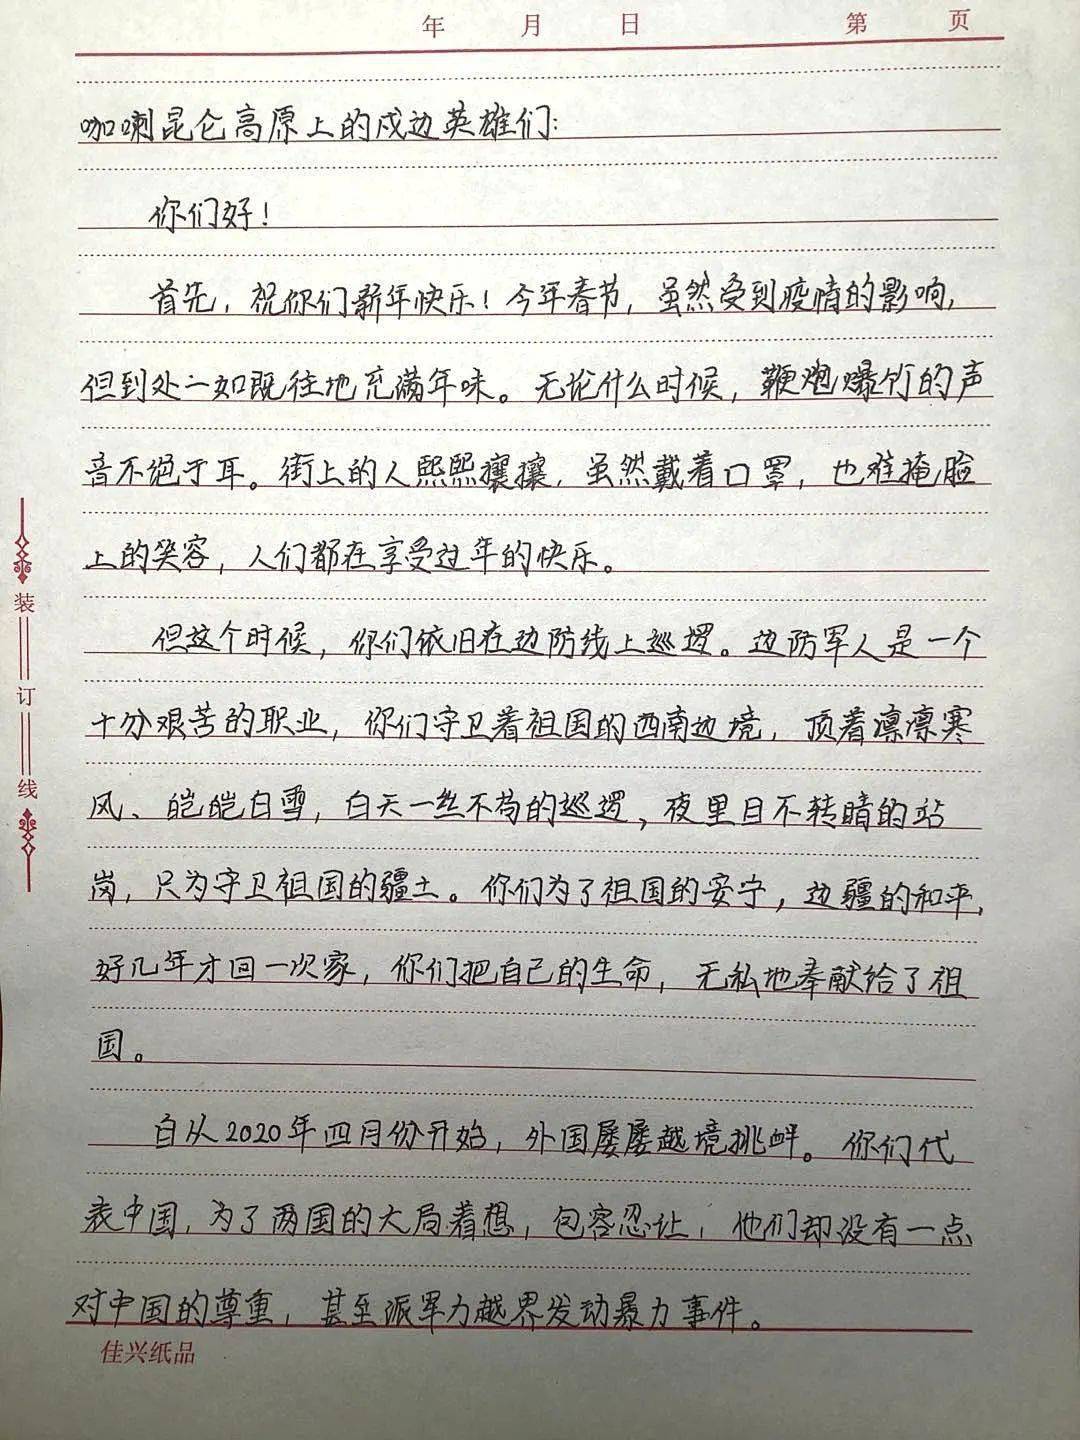 年 月 日 第 页
咖喇昆仑高原上的戍边英雄们：
你们好！
首先，祝你们新年快乐！今年春节，虽然受到疫情的影响，
但到处一如既往地充满年味。无论什么时候，鞭炮爆竹的声
音不绝于耳。街上的人熙熙攘攘，虽然戴着口罩，也难掩脸
上的笑容，人们都在享受过年的快乐。
但这个时候，你们依旧在边防线上巡逻。边防军人是一个
十分艰苦的职业，你们守卫着祖国的西南边境，顶着凛凛寒
风、皑皑白雪，白天一丝不苟的巡逻，夜里目不转睛的站
岗，只为守卫祖国的疆土。你们为了祖国的安宁，边疆的和平，
好几年才回一次家，你们把自己的生命，无私地奉献给了祖
国。
自从2020年四月份开始，外国屡屡越境挑衅。你们代
表中国，为了两国的大局着想，包容忍让，他们却没有一点
对中国的尊重，甚至派军力越界发动暴力事件。
佳兴纸品
装
订
线